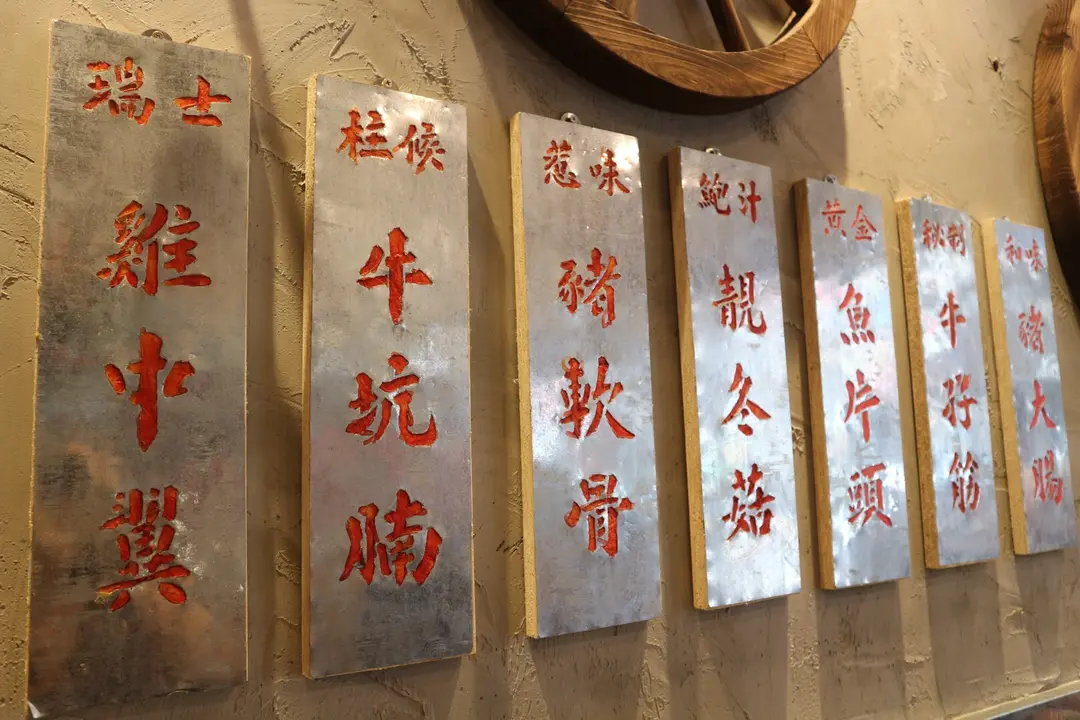 瑞士
雞中翼
柱候
牛坑腩
惹味
豬軟骨
鮑汁
靚冬菇
黄金
魚片頭
秘制
牛孖筋
和味
豬大腸